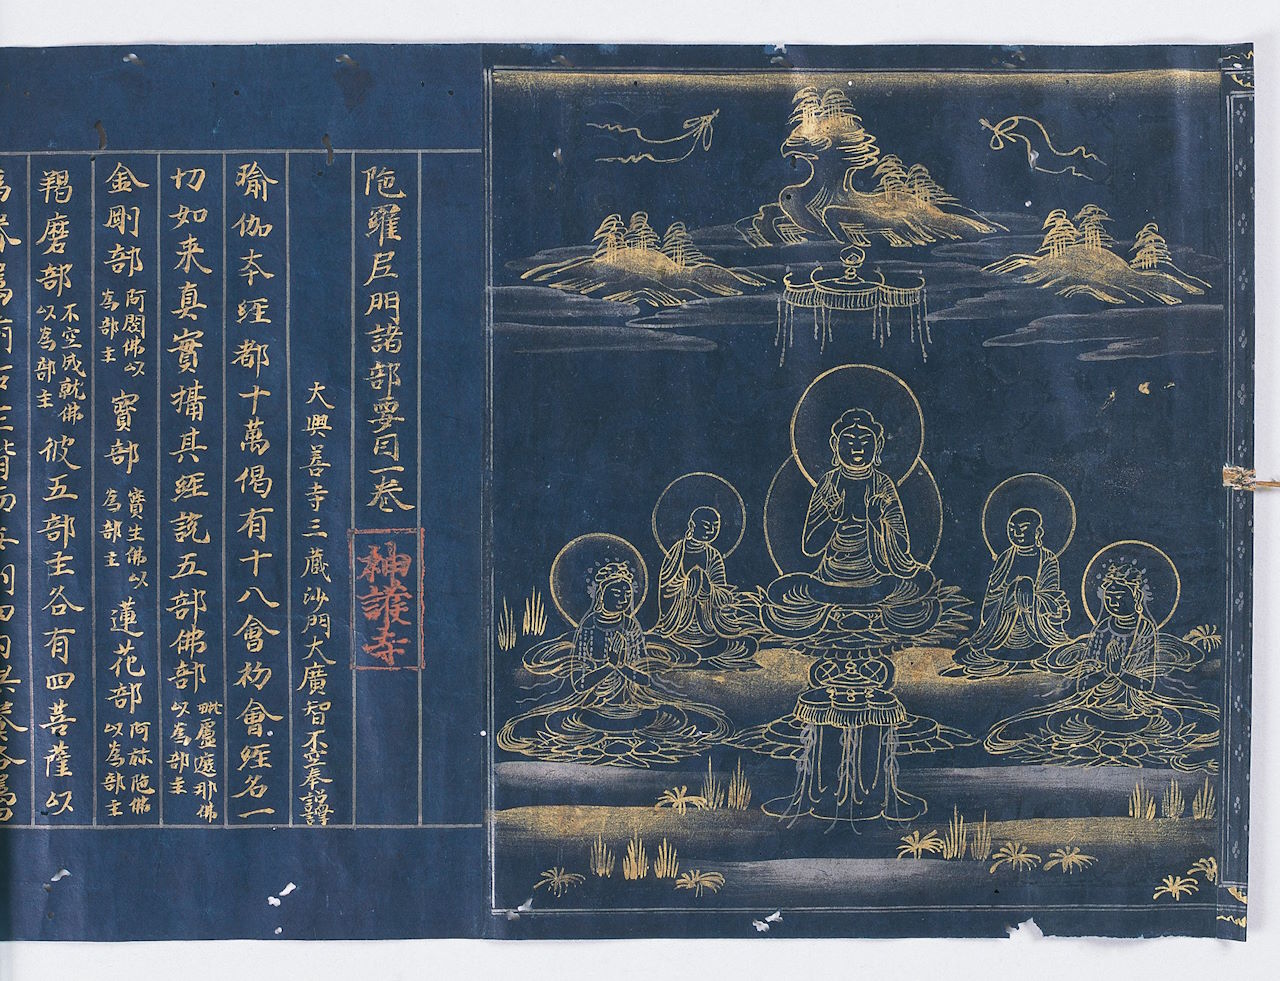 陁羅尼門諸部要目一卷
神護寺
大興善寺三藏沙門大廣智不空奉詔譯
瑜伽本經都十萬偈有十八會初會經名一
切如来真實攝其經說五部佛部毗盧遮那佛以為部主
金剛部阿閦佛以為部主寶部寶生佛以為部主蓮花部阿祢陁佛以為部主
羯磨部不空成就佛以為部主彼五部主各有四菩薩以